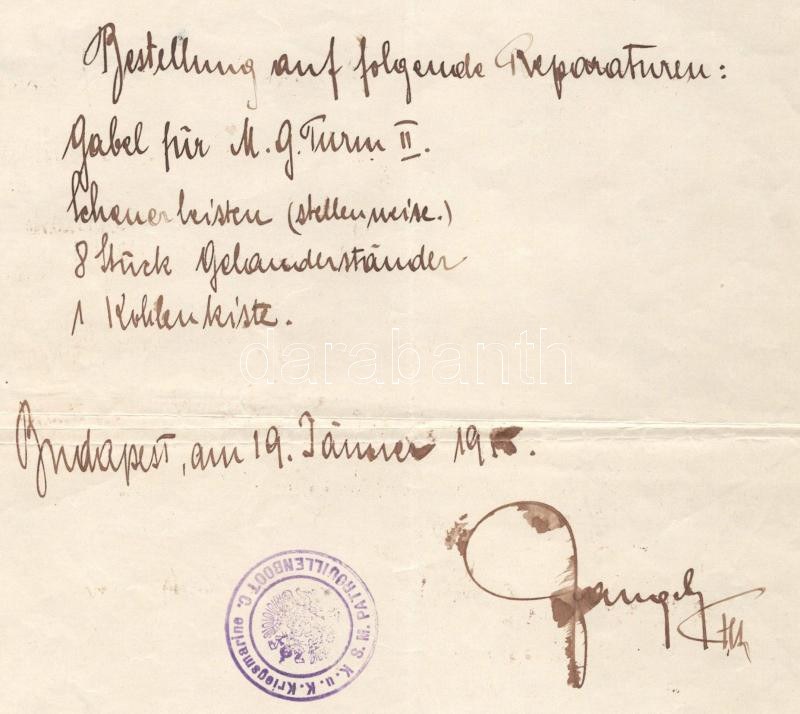 Bestellung auf folgende Reparaturen:
Gabel für M.G. Turm II.
Scheuerleisten (stellenweise.)
8 Stück Geländerständer
1 Kohlenkiste.
darabanth
Budapest, am 19. Jänner 19
K.u.K. Kriegsmarine. S.M. PATROUILLENBOOT C.